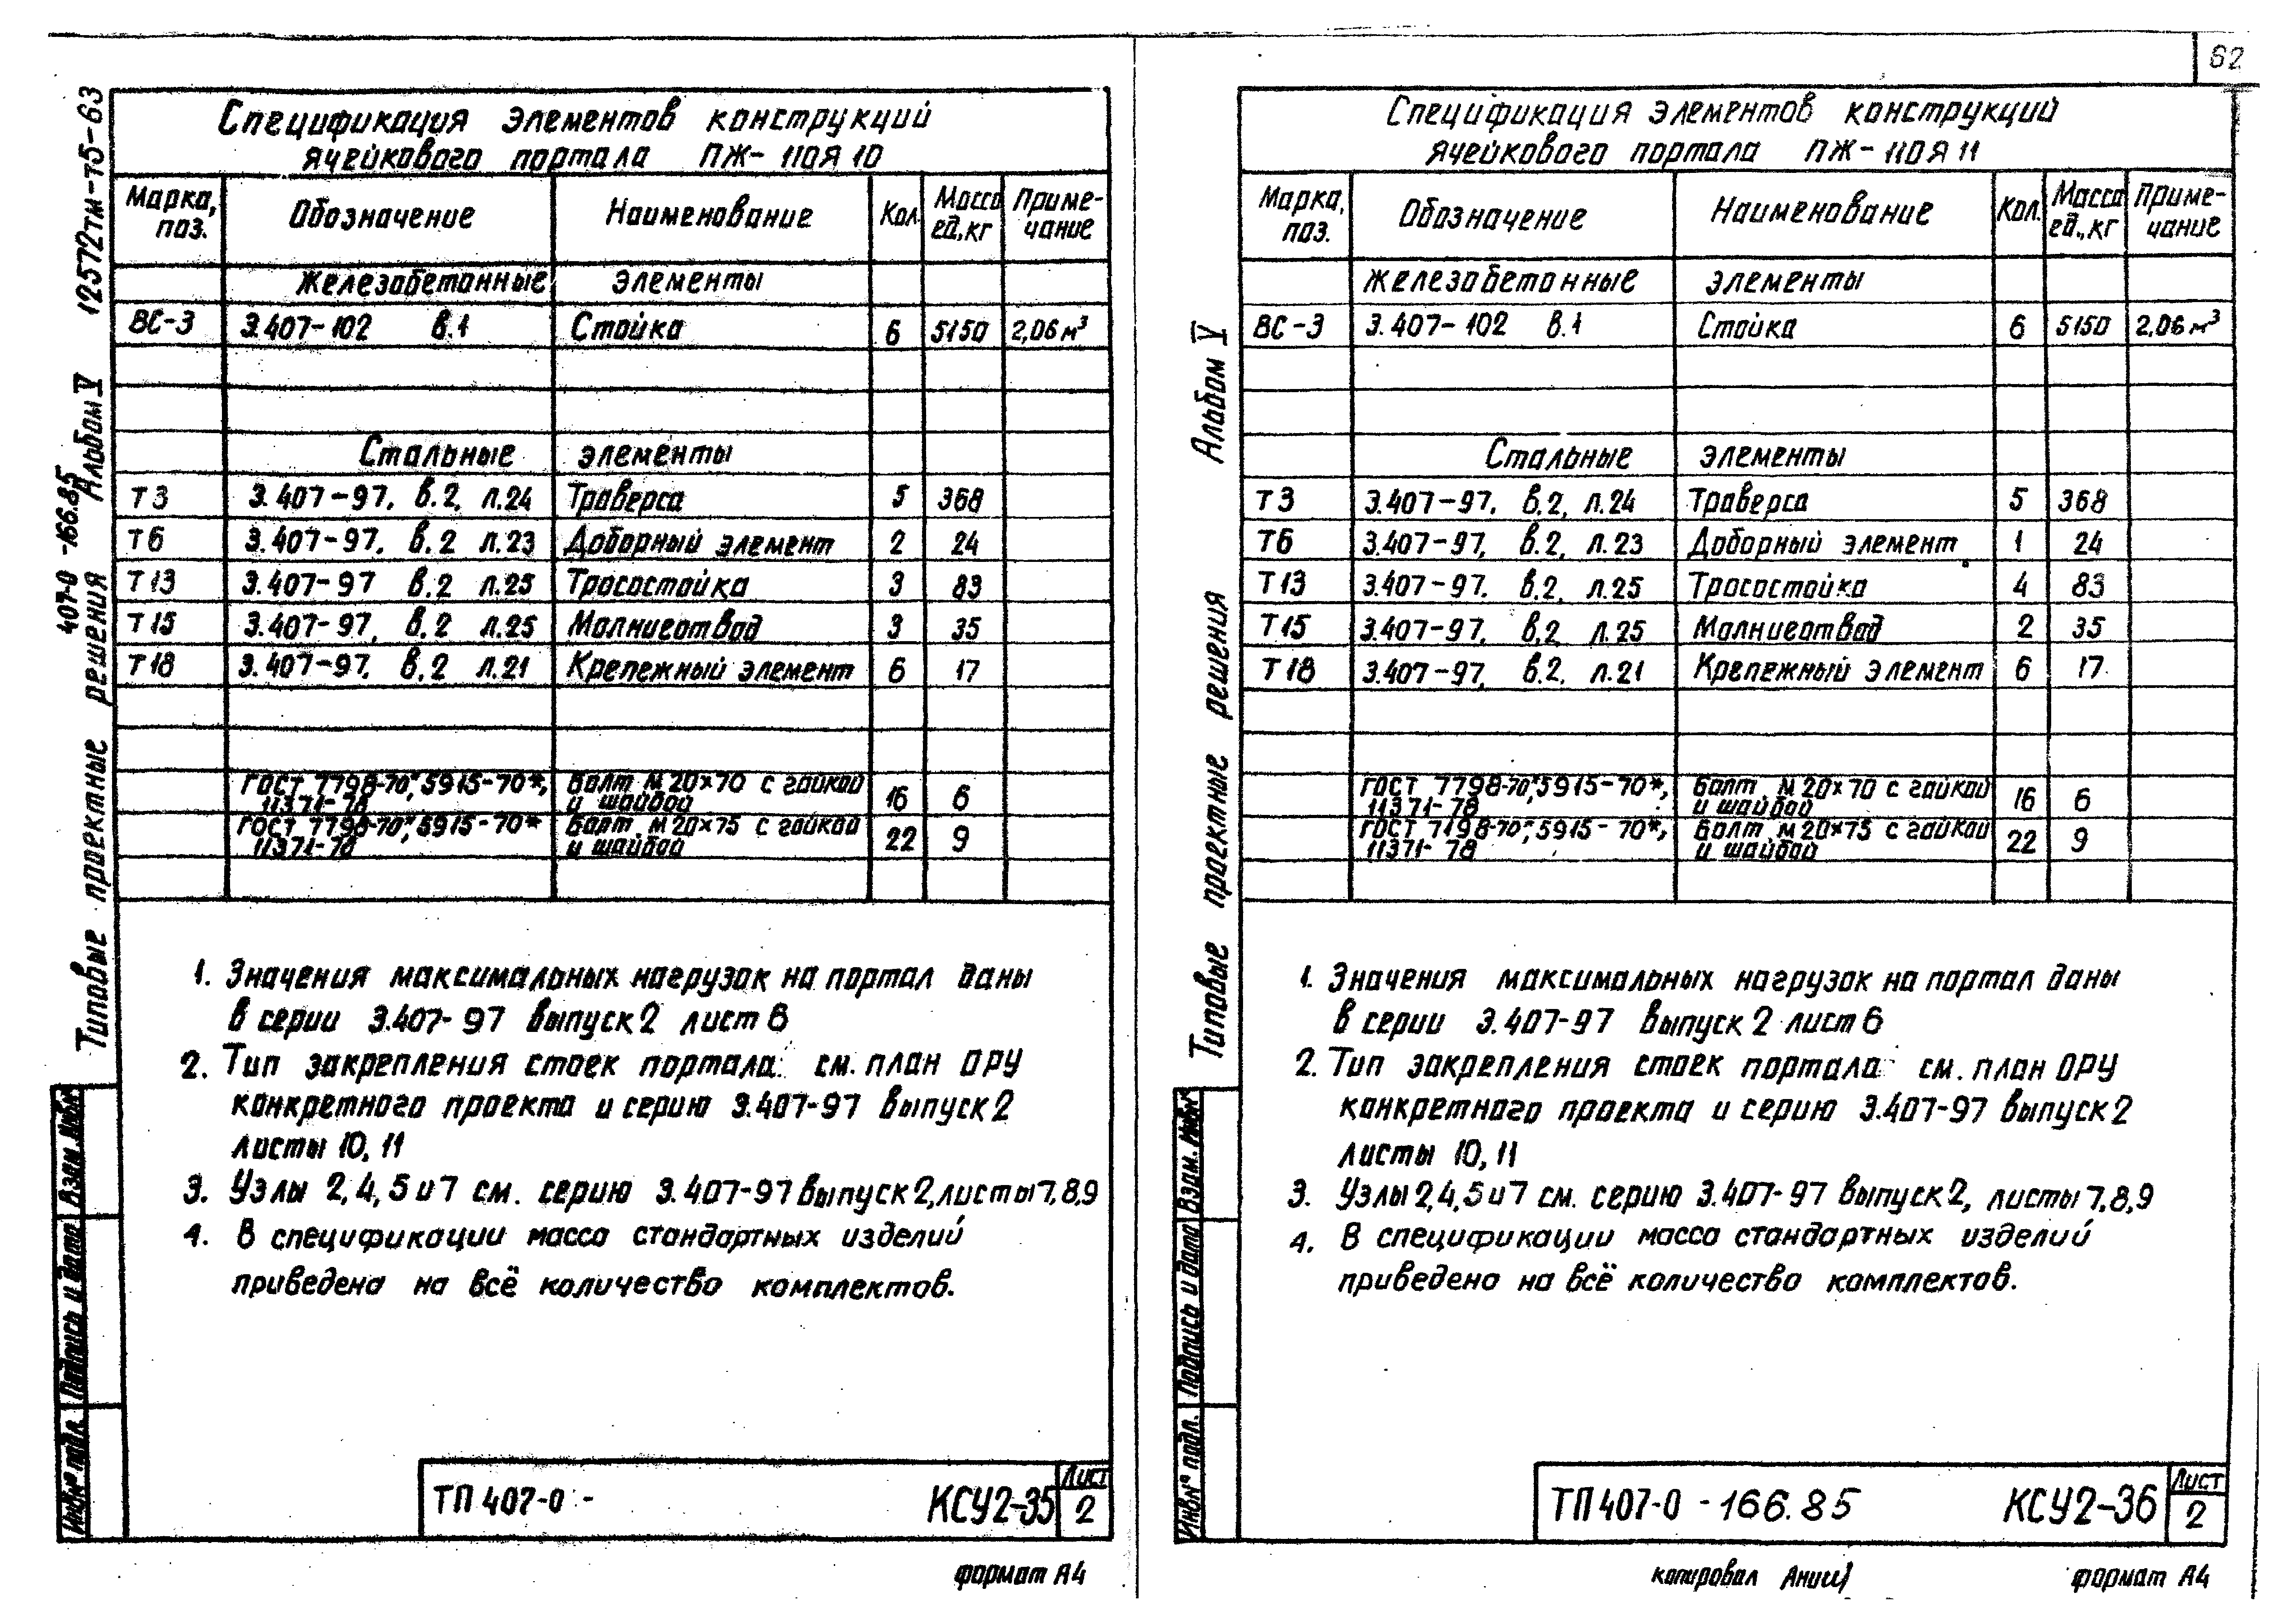 62
12572тм-т5-63
407-0-166.85
Альбом V
Типовые проектные решения
Спецификация элементов конструкций
ячейкового портала ПЖ-110Я10
Марка, поз. Обозначение Наименование Кол. Масса ед,кг Примечание
Железобетонные элементы
ВС-3 3.407-102 в.1 Стойка 6 5150 2,06м³
Стальные элементы
Т3 3.407-97, в.2, л.24 Траверса 5 368
Т6 3.407-97, в.2 л.23 Доборный элемент 2 24
Т13 3.407-97 в.2 л.25 Тросостойка 3 83
Т15 3.407-97, в.2 л.25 Молниеотвод 3 35
Т18 3.407-97, в.2 л.21 Крепежный элемент 6 17
ГОСТ 7798-70*, 5915-70*, Болт М20×70 с гайкой
11371-78 и шайбой 16 6
ГОСТ 7798-70*, 5915-70* Болт М20×75 с гайкой
11371-78 и шайбой 22 9
1. Значения максимальных нагрузок на портал даны
в серии 3.407-97 выпуск 2 лист 6
2. Тип закрепления стоек портала см. план ОРУ
конкретного проекта и серию 3.407-97 выпуск 2
листы 10, 11
3. Узлы 2,4,5 и 7 см. серию 3.407-97 выпуск 2, листы 7,8,9
4. В спецификации масса стандартных изделий
приведена на всё количество комплектов.
Инв№ подл. Подпись и дата Взам. Инв№
ТП 407-0 - КСУ2-35 Лист 2
формат А4
Альбом V
Типовые проектные решения
Спецификация элементов конструкций
ячейкового портала ПЖ-110Я11
Марка, поз. Обозначение Наименование Кол. Масса ед.,кг Примечание
Железобетонные элементы
ВС-3 3.407-102 в.1 Стойка 6 5150 2,06м³
Стальные элементы
Т3 3.407-97. в.2, л.24 Траверса 5 368
Т6 3.407-97, в.2, л.23 Доборный элемент 1 24
Т13 3.407-97. в.2, л.25 Тросостойка 4 83
Т15 3.407-97, в.2, л.25 Молниеотвод 2 35
Т18 3.407-97, в.2, л.21 Крепежный элемент 6 17
ГОСТ 7798-70*, 5915-70*, Болт М20×70 с гайкой
11371-78 и шайбой 16 6
ГОСТ 7198-70*, 5915-70*, Болт М20×75 с гайкой
11371-78 и шайбой 22 9
1. Значения максимальных нагрузок на портал даны
в серии 3.407-97 выпуск 2 лист 6
2. Тип закрепления стоек портала см. план ОРУ
конкретного проекта и серию 3.407-97 выпуск 2
листы 10, 11
3. Узлы 2,4,5 и 7 см. серию 3.407-97 выпуск 2, листы 7,8,9
4. В спецификации масса стандартных изделий
приведена на всё количество комплектов.
Инв№ подл. Подпись и дата Взам. Инв№
ТП 407-0 -166.85 КСУ2-36 Лист 2
копировал формат А4